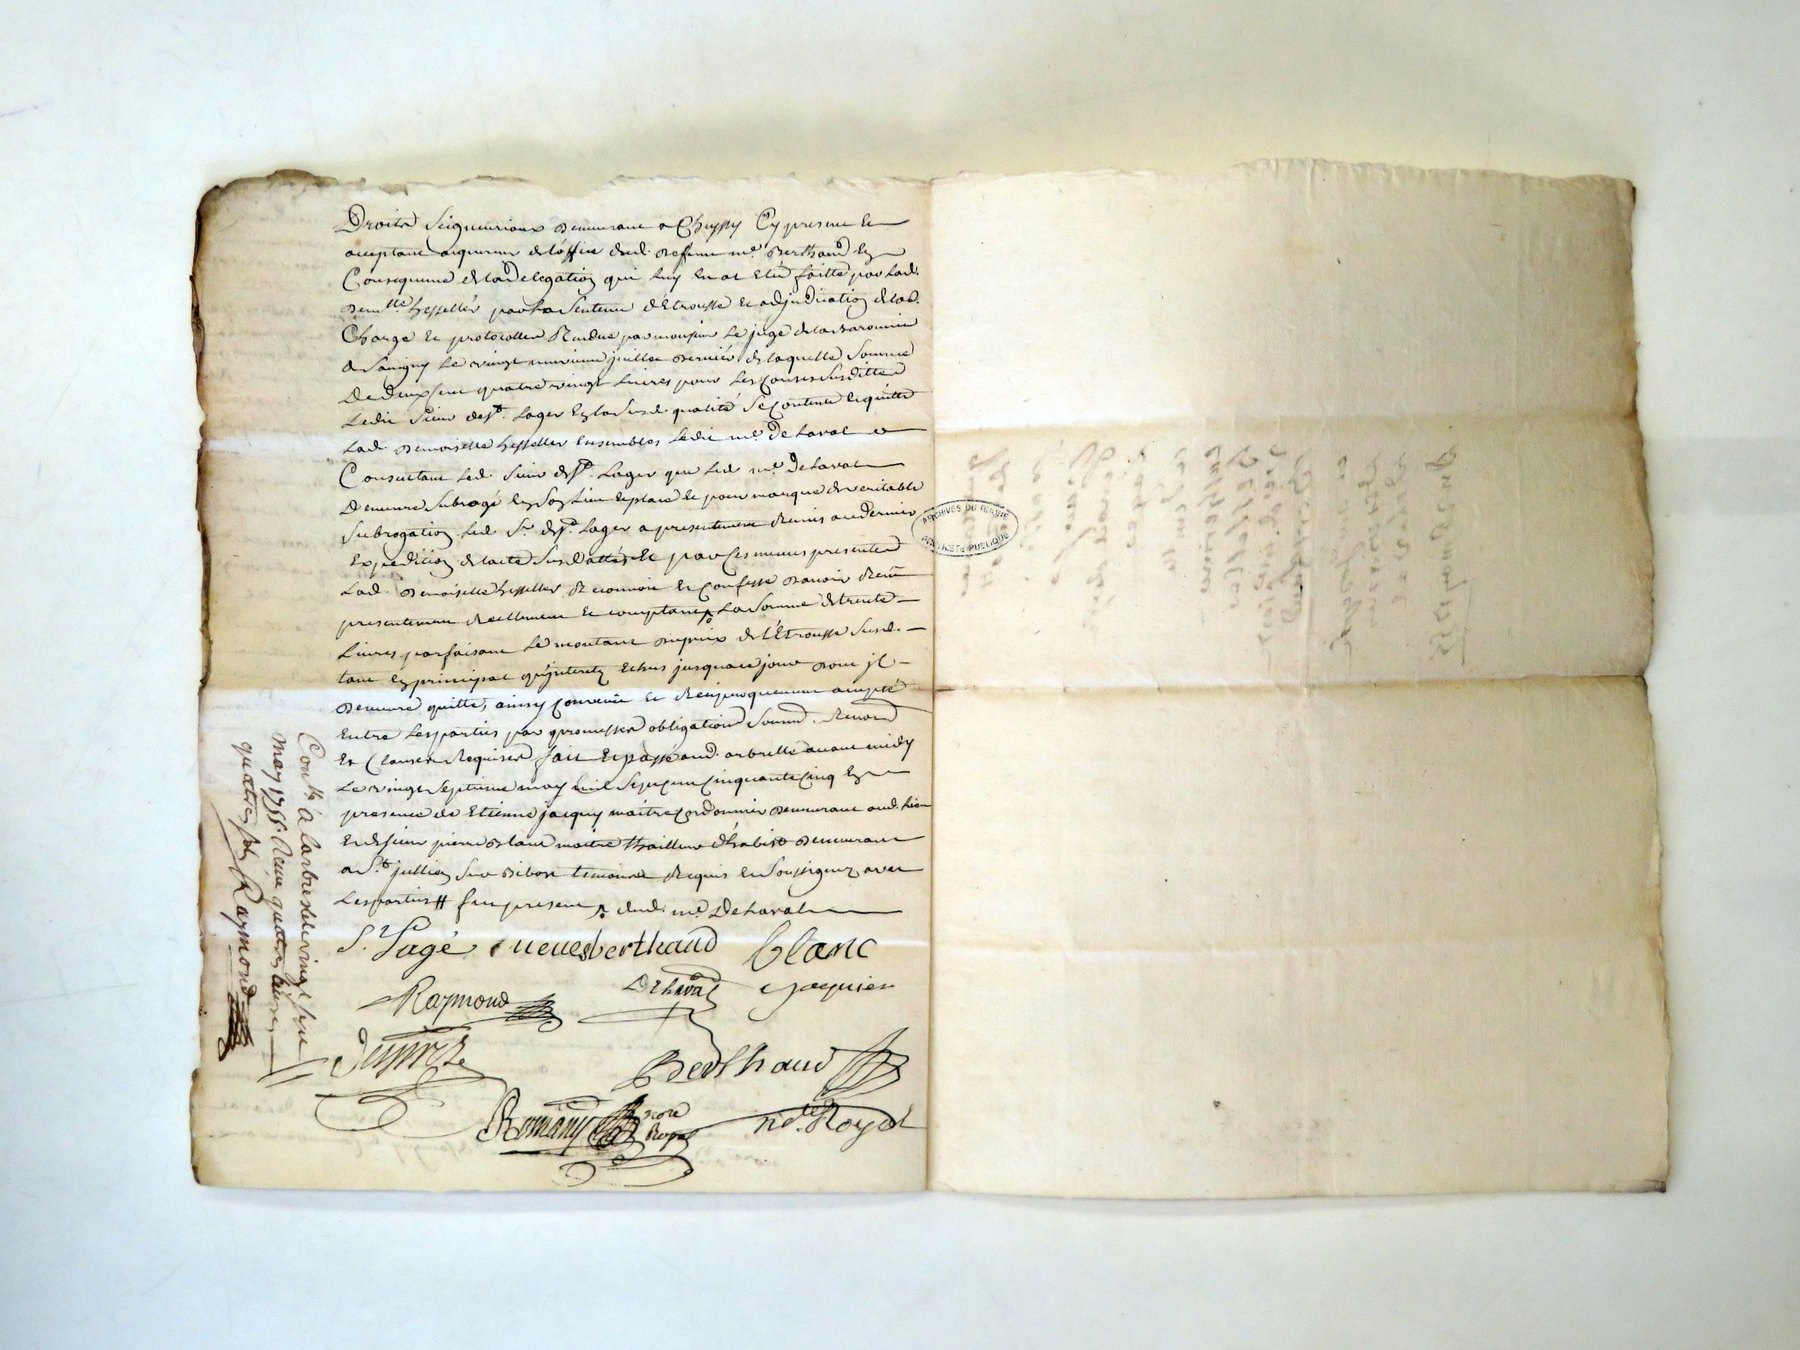 Droits Seigneuriaux demeurant a Chessy Cy present et
acceptant acquereur de l'office dud. deffunt me. Berthaud En
Consequence de la Delegation qui luy en at eté faitte par lad.
demlle. hesseller par la Sentence d'Etrousse et adjudication de lad.
Charge et protocolles Rendue par monsieur Le juge de la Baronnie
de Savigny Le vingt neuvieme juillet dernier de laquelle Somme
De Deux Cent quatre vingt Livres pour Les Causes Susdittes
Ledit Sieur de St. Lager En la Susd. qualité Se Contente et quitte
Lad. demoiselle hesseller Ensembles Ledit me. De Laval
Consentant Led. Sieur de St. Lager que Led. me. De Laval
Demeure Subrogé En Son Lieu et place et pour marque de veritable
Subrogation Led. Sr. de St. Lager a presentement Remis au dernier
Expedition de l'acte Susdatté Et par Ces memes presentes
Lad. Demoiselle hesseller Reconnoit et Confesse D'avoir Receu
presentement Reellement et comptant La Somme de trente
Livres parfaisant Le montant du prix de l'Etrousse Susd.
tant En principal qu'jnterets Echus jusqu'a ce jour dont jl
demeure quitte, ainsy Convenu et Reciproquement accepté
Entre Les parties par promesses obligations Soumd. Renond
Et Clauses Requises fait Et passé aud. arbresle avant midy
Le vingt Septieme may mil Sept cent Cinquante Cinq En
presence de Etienne jacquy maitre Cordonnier demeurant aud. Lieu
Et de Sieur pierre Blanc maitre thailleur d'habist demeurant
a St. jullien Sur Bibost temoins Requis et Soussignez avec
Les parties # fut present dud. me. De Laval
St. Lagé veuve berthaud blanc
Raymond Delaval jacquier
Berthaud
Romany nore Royal
Con.lé A Larbresle Le vingt Sept
may 1755. Receu quatre Livres
quatre sols Raymond
ARCHIVES DU RHONE
PROPRIETE PUBLIQUE